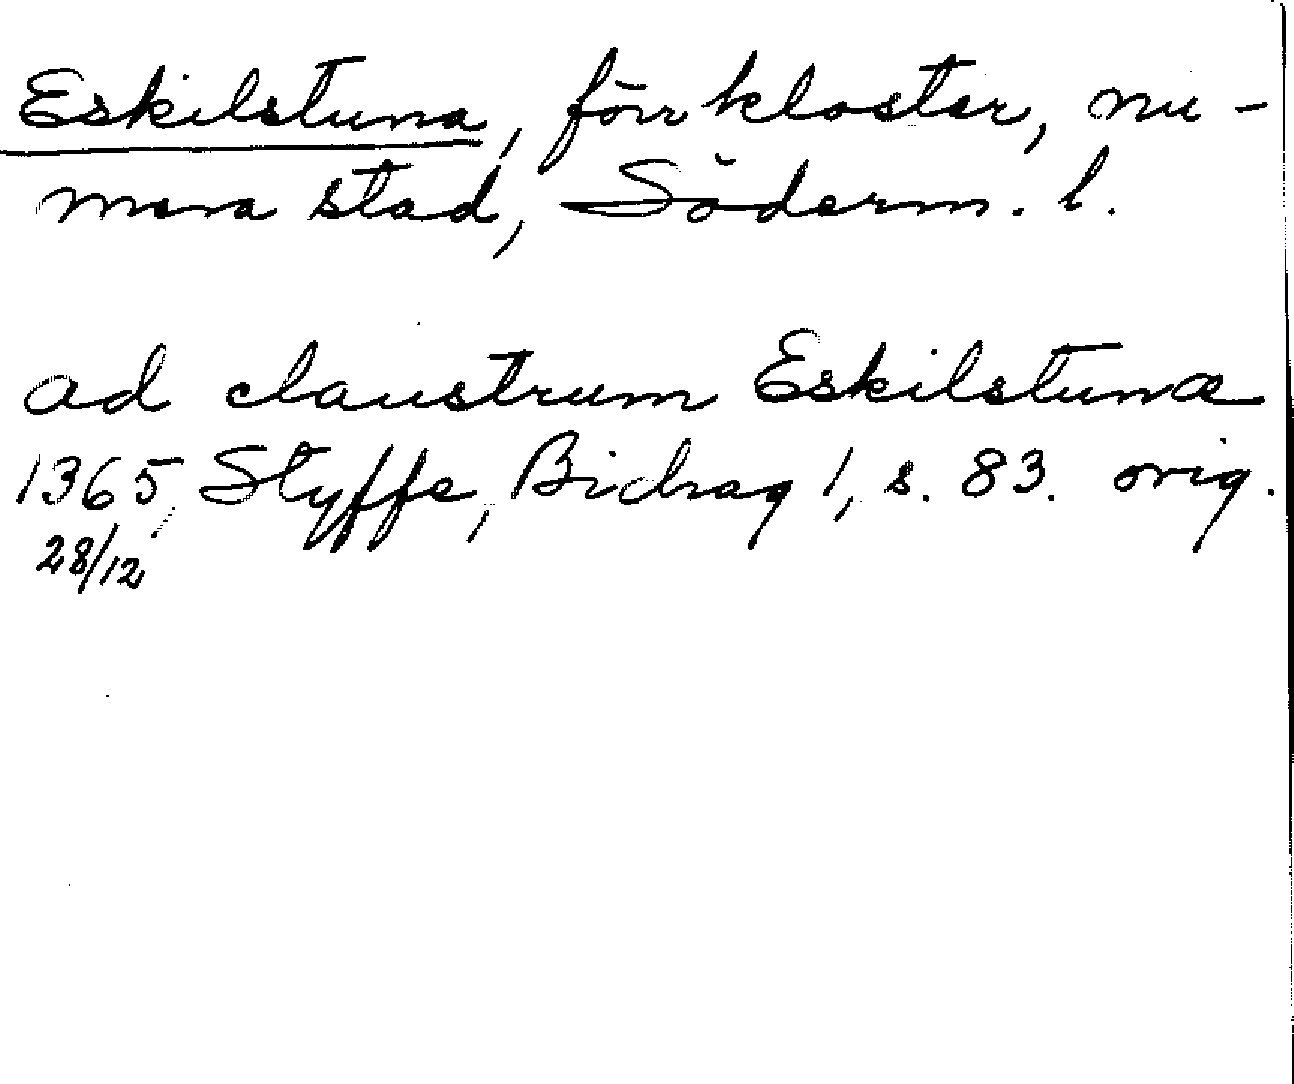 Eskilstuna, förr kloster, nu-
mera stad, Söderm. l.
ad claustrum Eskilstunæ
1365, Styffe, Bidrag 1, s. 83. orig.
28/12